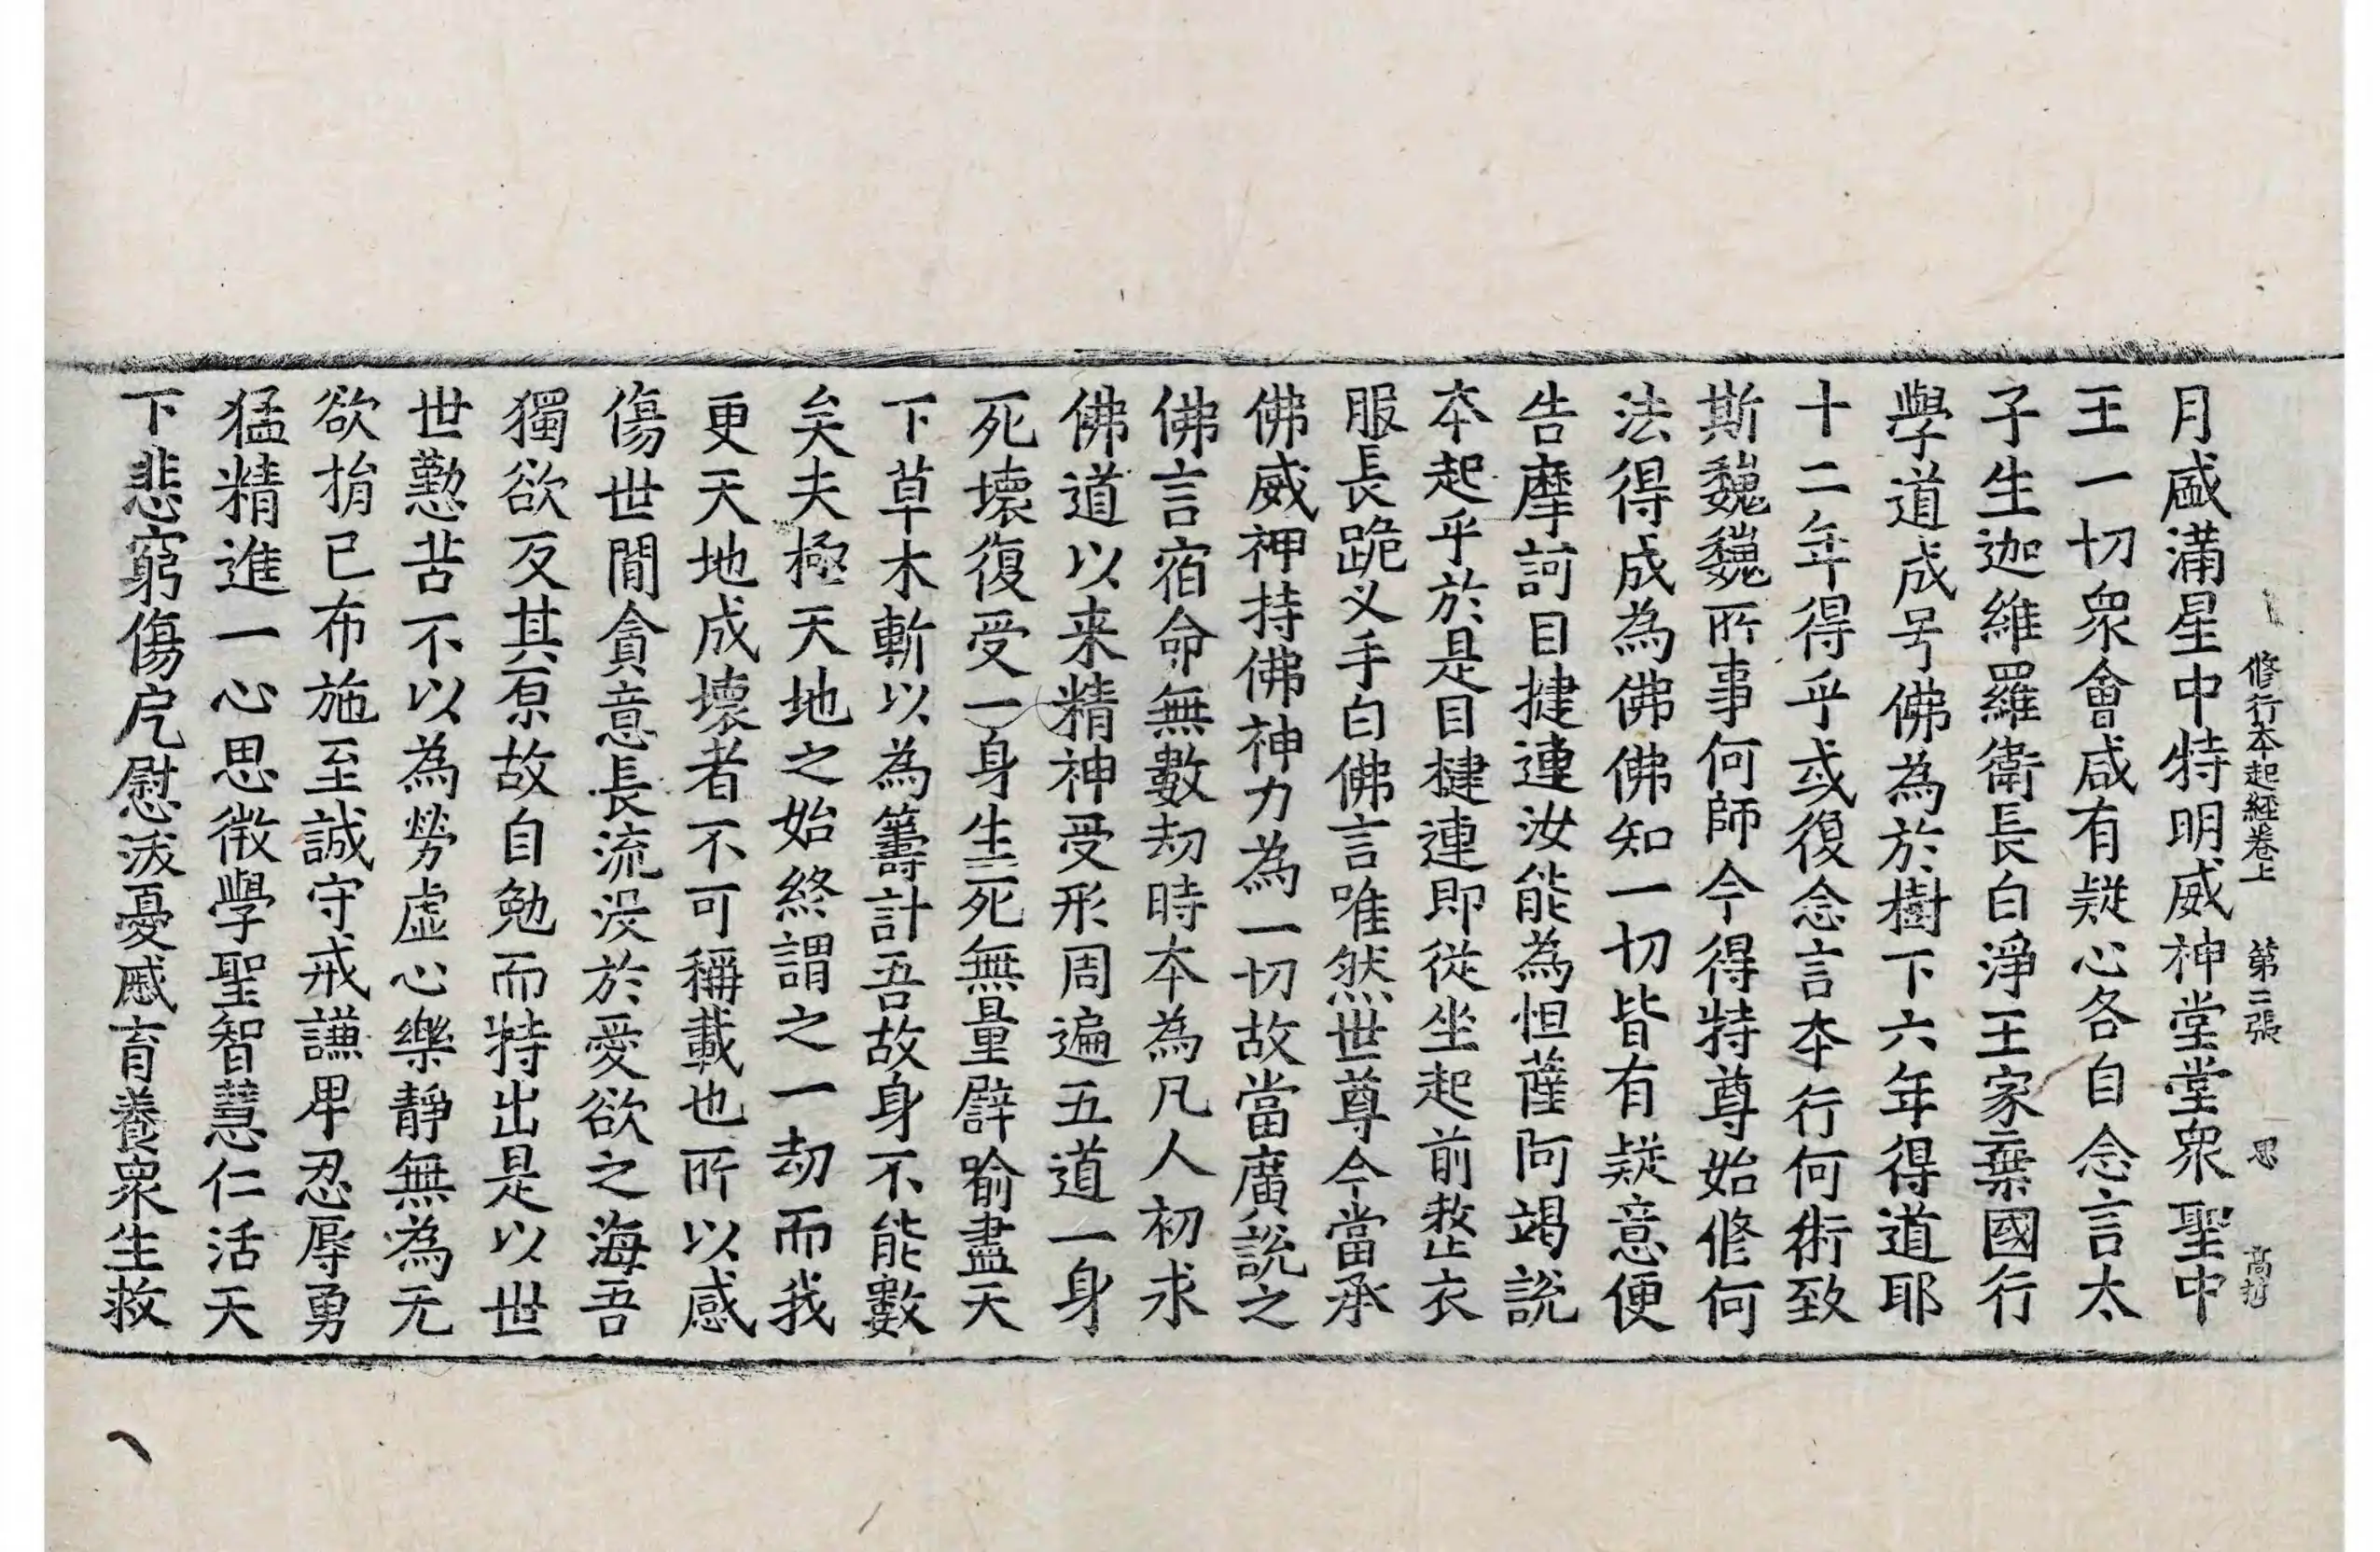 修行本起經卷上 第二張 思
月盛滿星中特明威神堂堂衆聖中
王一切衆會咸有疑心各自念言太
子生迦維羅衛長白淨王家棄國行
學道成号佛為於樹下六年得道耶
十二年得乎或復念言本行何術致
斯巍巍所事何師今得特尊始修何
法得成為佛佛知一切皆有疑意便
告摩訶目揵連汝能為怛薩阿竭說
本起乎於是目揵連即從坐起前整衣
服長跪叉手白佛言唯然世尊今當承
佛威神持佛神力為一切故當廣說之
佛言宿命無數劫時本為凡人初求
佛道以来精神受形周遍五道一身
死壞復受一身生死無量譬喻盡天
下草木斬以為籌計吾故身不能數
矣夫極天地之始終謂之一劫而我
更天地成壞者不可稱載也所以感
傷世閒貪意長流没於愛欲之海吾
獨欲反其原故自勉而特出是以世
世懃苦不以為勞虛心樂静無為无
欲捐已布施至誠守戒謙卑忍辱勇
猛精進一心思微學聖智慧仁活天
下悲窮傷厄慰沃憂慼育養衆生救